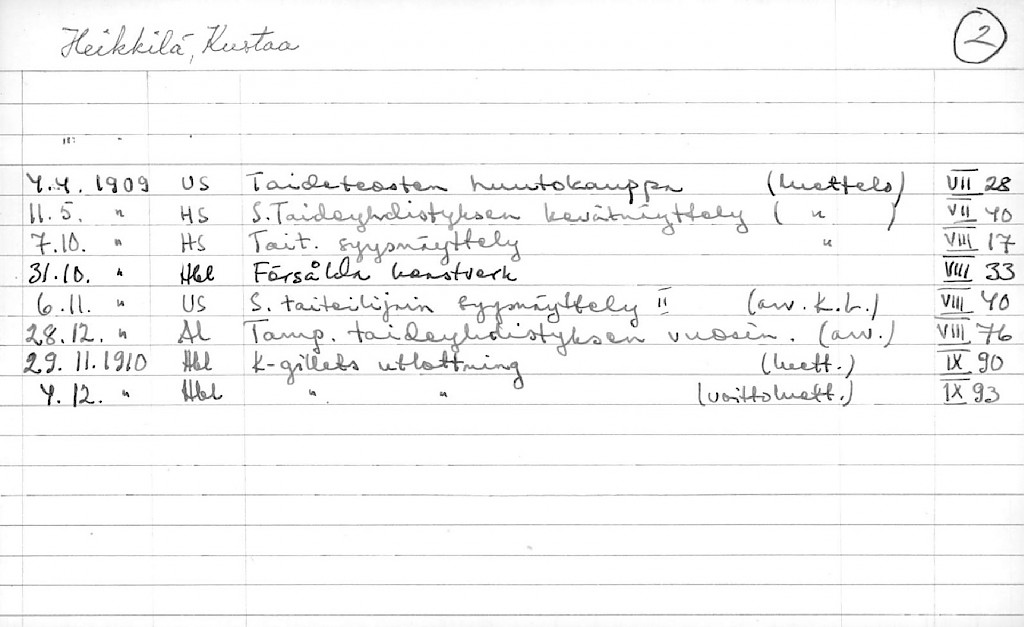 Heikkilä, Kustaa 2
4.4. 1909 US Taideteosten huutokauppa (luettelo) VII 28
11.5. " HS S. Taideyhdistyksen kevätnäyttely ( " ) VII 40
7.10. " HS Tait. syysnäyttely " VIII 17
31.10. " Hbl Försålda konstverk VIII 33
6.11. " US S. taiteilijain syysnäyttely II (arv. K.L.) VIII 40
28.12. " AL Tamp. taideyhdistyksen vuosin. (arv.) VIII 76
29.11.1910 Hbl K-gillets utlottning (luett.) IX 90
4.12. " Hbl " " (voittoluett.) IX 93